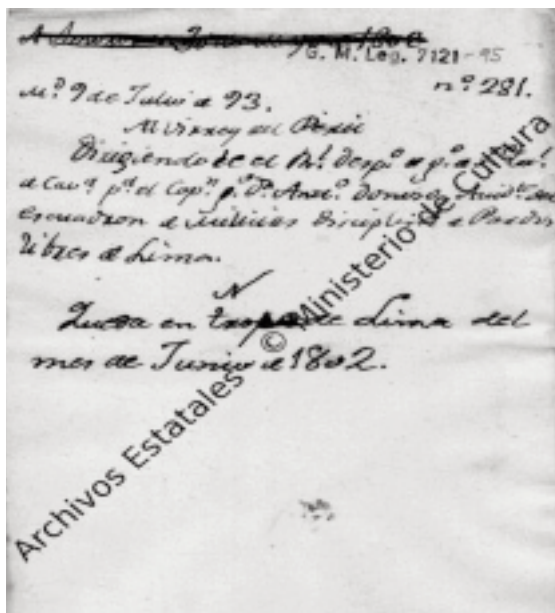 G. M. Leg. 7121-95
nº 281.
Mº 9 de Julio de 93.
Al Virrey del Perú
Dirigiendole el Rl. Despº de
de Cavª pª el Capn Dn Antº
escuadron de Milicias Discipldas de Pardos
libres de Lima.
N
Queda en tropa de Lima del
mes de Junio de 1802.
Archivos Estatales © Ministerio de Cultura